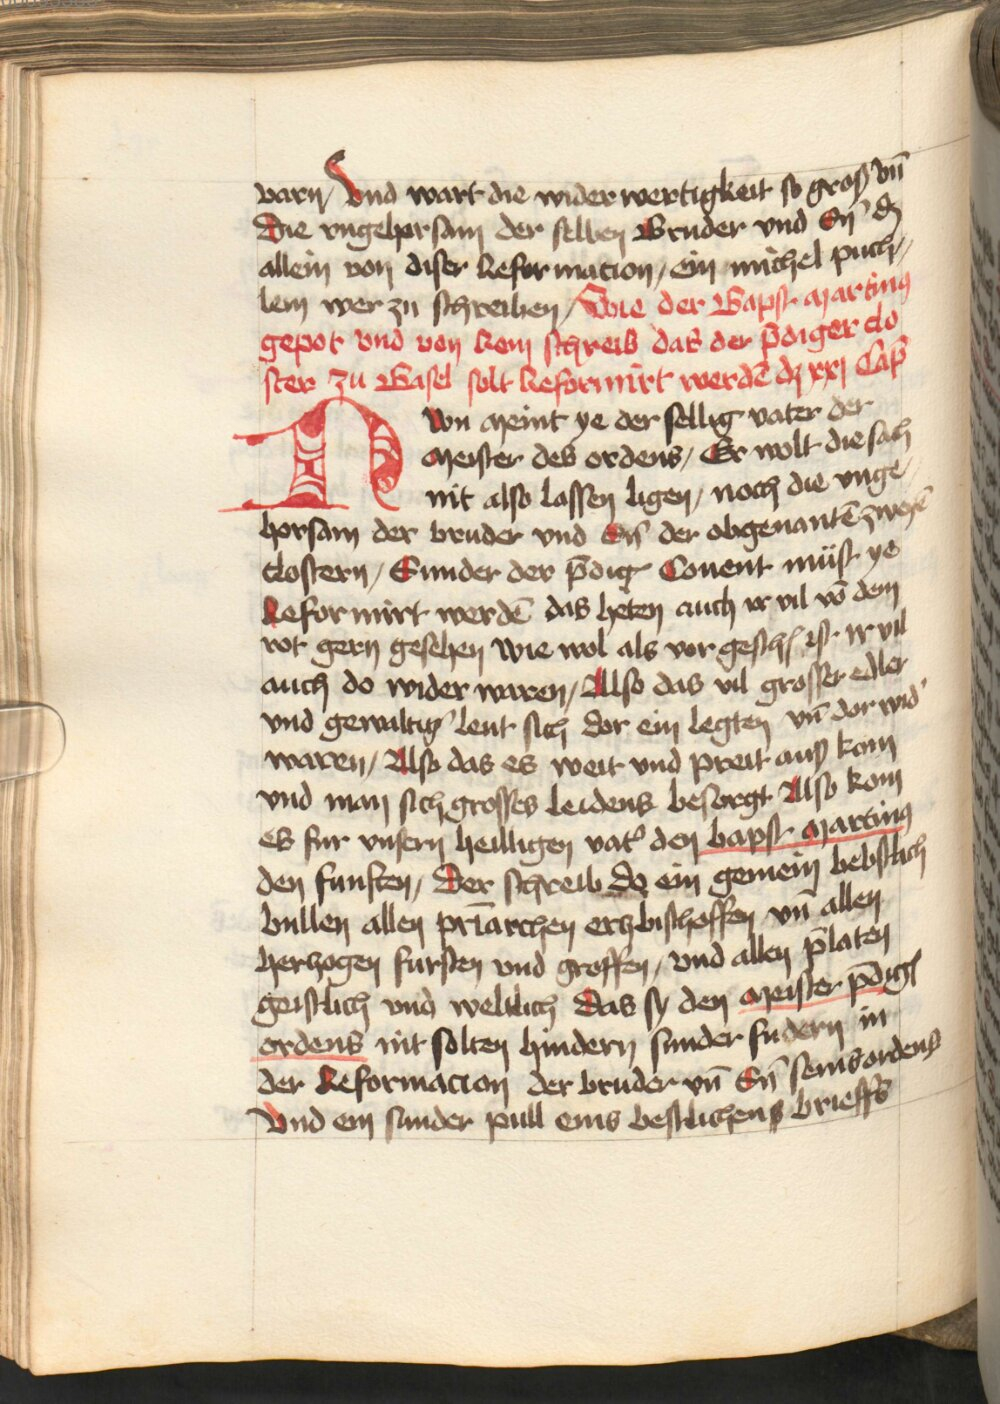 varn / Vnd wart die widerwertigkeit so groß vn̄
Die vngehorsam der selben Bruder vnd Sn̄ dz
allein von diser Reformacion / ein michel puch/
lein wer zu schreiben / Wie der Bapst Martinus
gepot vnd von Rom schreib das der p̄diger clo
ster zu Basel solt Reformirt werdē dz xxj Cap̄
Nun Meint ye der sellig vater der
Meister des ordens / Er wolt die sach
nit also lassen ligen / noch die vnge
horsam der bruder vnd Sn̄ der obgenantē zweyē
clostern / Sunder der p̄dig' Conuent müst ye
Reformirt werdē das heten auch ir vil vō dem
rot gern gesehen wie wol als vor gesch' ist ir vil
auch do wider waren / Also das vil grosser edler
vnd gewaltig' leut sich dor ein legten vn̄ dor wid'
waren / Also das es weit vnd preit auß kom
vnd man sich grosses leidens besorgt Also kom
es fur vnsern heilligen vat' den bapst Martinus
den funften / Der schreib do ein gemein bebstlich
bullen allen pri̅archen erzbischoffen vn̄ allen
herzogen fursten vnd groffen / vnd allen p̄laten
geistlich vnd weltlich Das sy den Meister p̄dig'
ordens nit solten hindern sunder fudern in
der Reformacion der bruder vn̄ Sn̄ seins ordens
Vnd ein sunder pull eins bestlichens brieffs